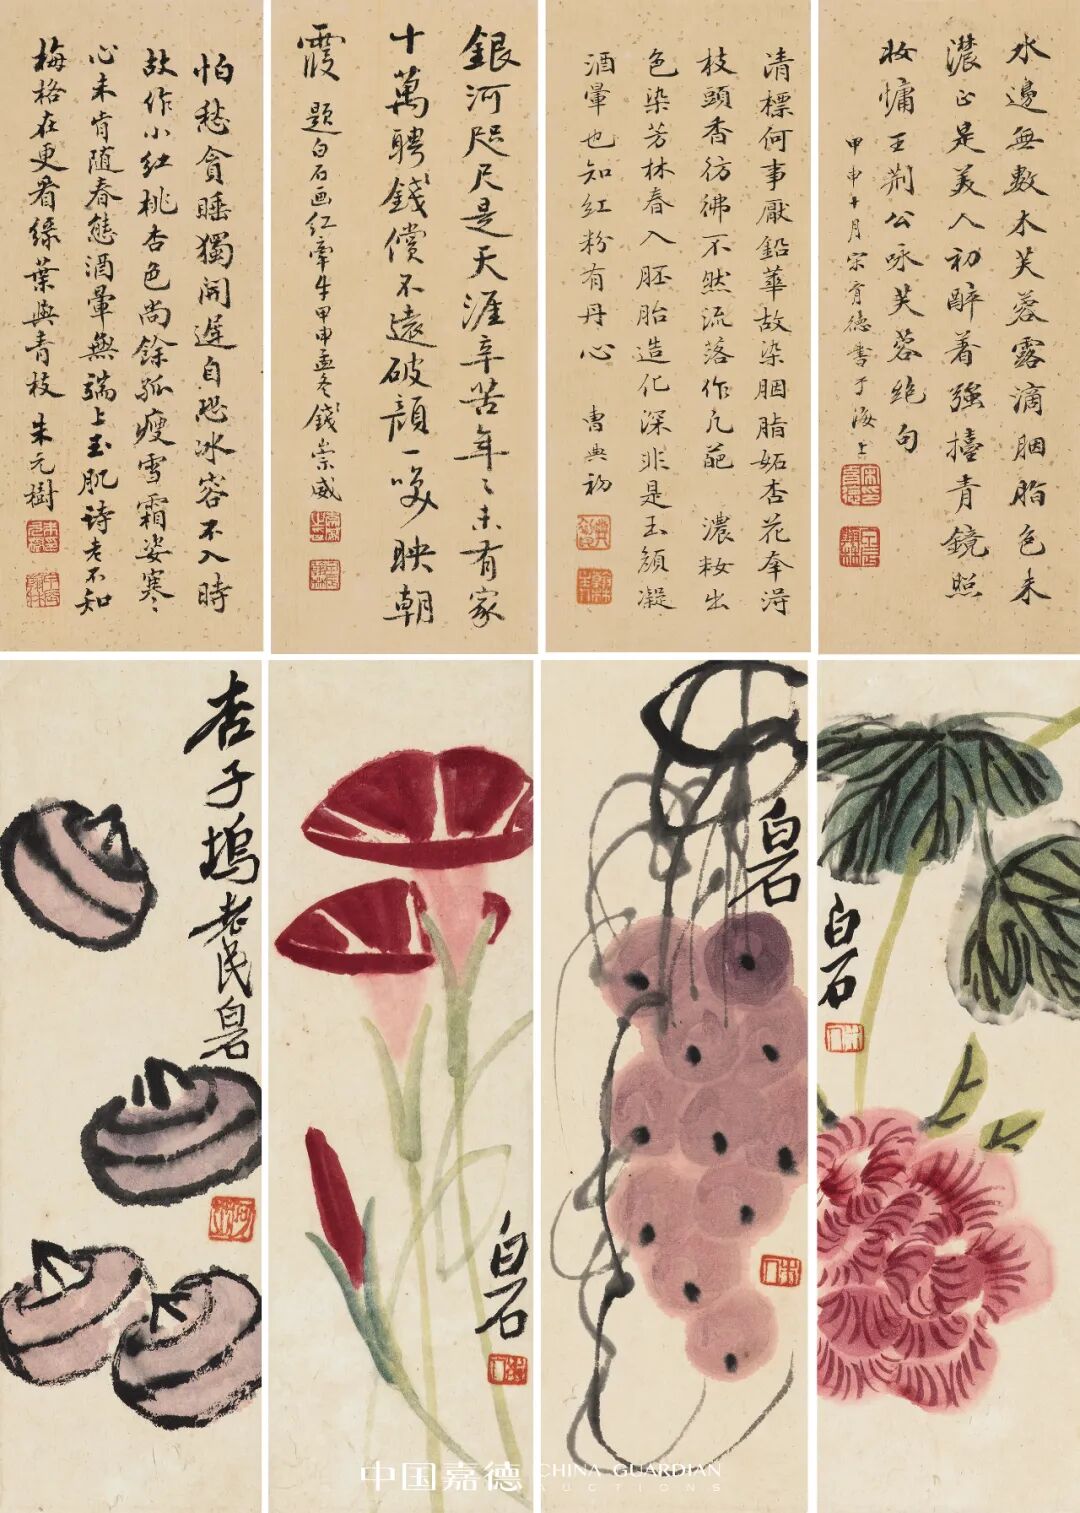 水邊無數木芙蓉露滴胭脂色未
濃正是美人初醉著強擡青鏡照
妝慵 王荆公咏芙蓉絶句
甲申十月宋育德書于海上
清標何事厭鉛華故染胭脂妬杏花奉淂
枝頭香彷彿不然流落作凡葩 濃妝出
色染芳林春入胚胎造化深非是玉顔凝
酒暈也知紅粉有丹心 曹典初
銀河咫尺是天涯辛苦年〻未有家
十萬聘錢償不遠破顔一咲映朝
霞 題白石画紅牽牛甲申孟冬錢崇威
怕愁貪睡獨開遲自恐冰容不入時
故作小紅桃杏色尚餘孤瘦雪霜姿寒〻
心未肯随春態酒暈無端上玉肌詩老不知
梅格在更看綠葉與青枝 朱元樹
白石
白石
白石
杏子塢老民白石
中国嘉德 CHINA GUARDIAN
AUCTIONS